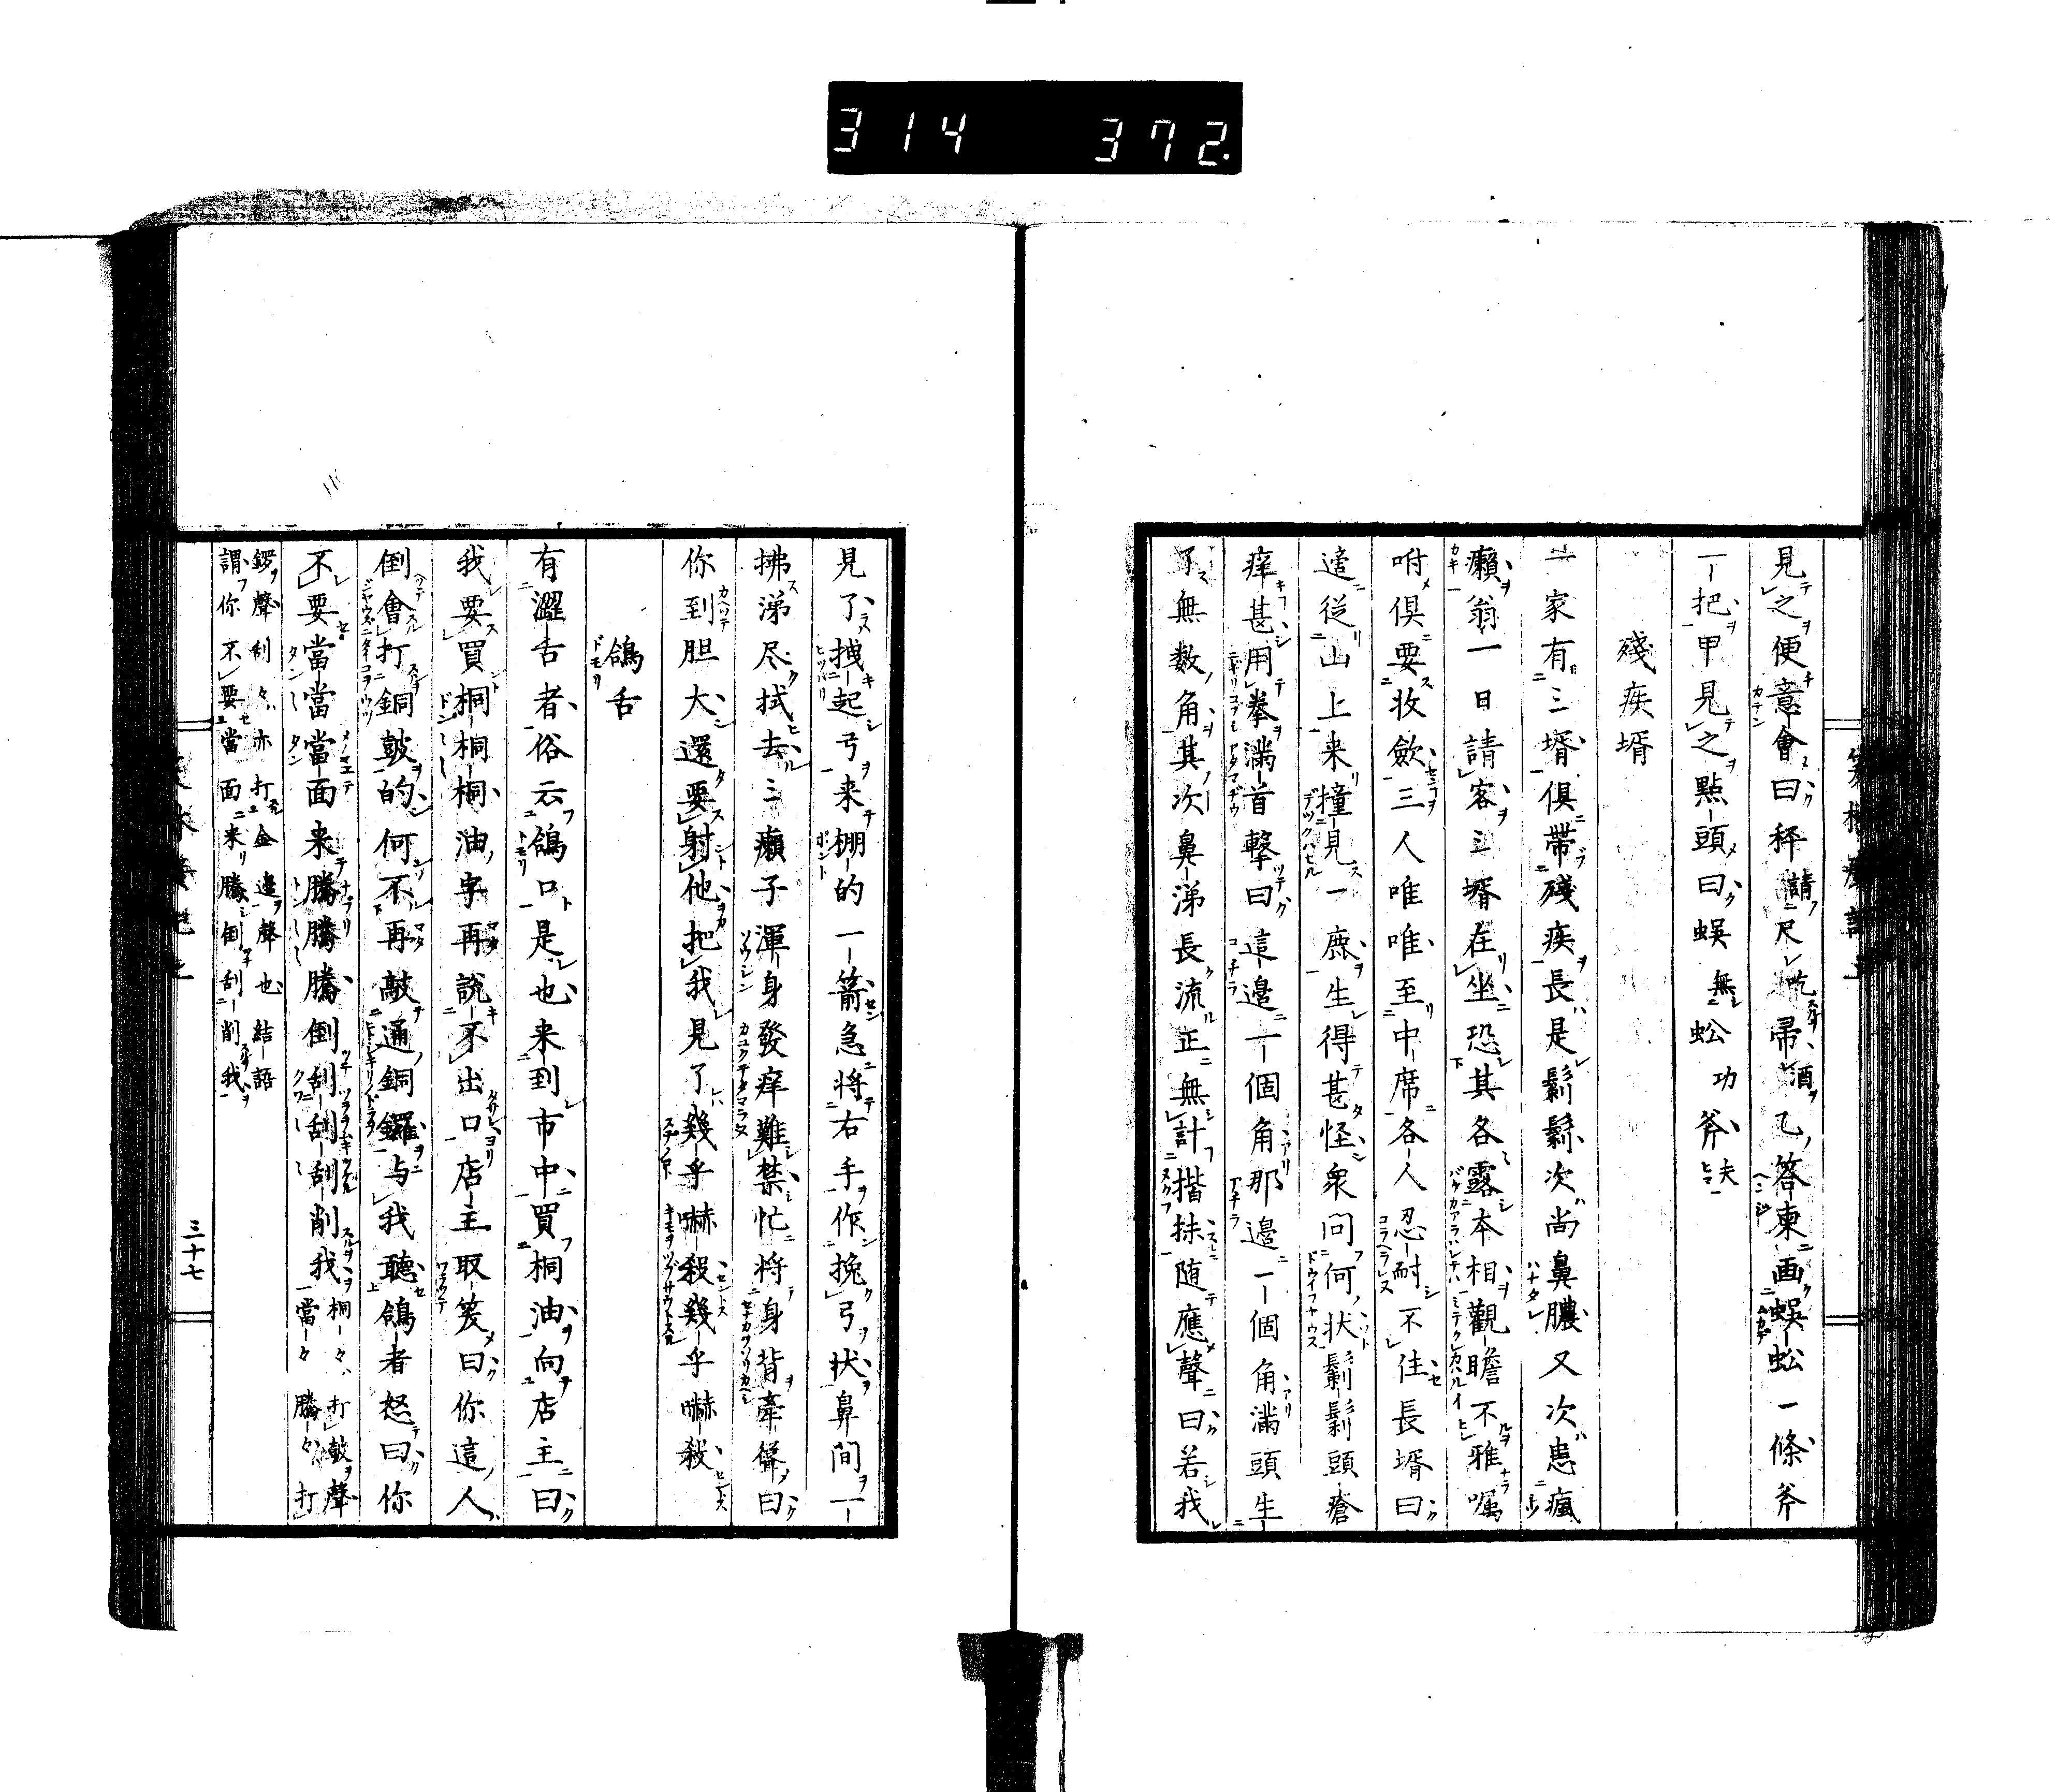 314 372.
見之便意會曰秤請尺吃帚酒乙答東画蜈蚣一條斧
一把甲見之點頭曰蜈無蚣功斧夫
殘疾壻
一家有三壻俱帶殘疾長是鬎鬁次尚鼻膿又次患瘋
癩翁一日請客三壻在坐恐其各露本相觀瞻不雅囑
咐俱要收斂三人唯唯至中席各人忍耐不住長壻曰
適從山上来撞見一鹿生得甚怪衆問何状鬎鬁頭瘡
痒甚用拳滿首擊曰這邉一個角那邉一個角滿頭生
了無数角其次鼻涕長流正無計揩抹随應聲曰若我
見了拽起弓来棚的一箭急將右手作挽弓状鼻間一
拂涕尽拭去三癩子渾身發痒難禁忙將身背牽聳曰
你到胆大還要射他把我見了幾乎嚇殺幾乎嚇殺
鴿舌
有澀舌者俗云鴿口是也来到市中買桐油向店主曰
我要買桐桐桐油字再説不出口店主取笑曰你這人
倒會打銅鼓的何不再敲通銅鑼与我聽鴿者怒曰你
不要當當當面来騰騰騰倒刮刮刮削我
桐々打鼓聲
當々騰々打
鑼聲刮々亦打金邉聲也結語
謂你不要當面来騰倒刮削我
三十七